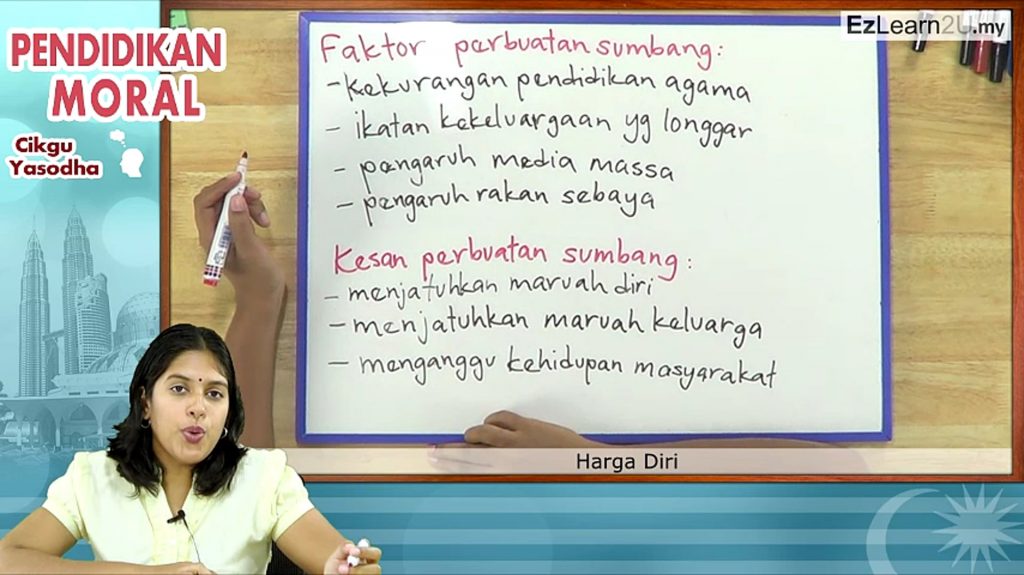 PENDIDIKAN
MORAL
Cikgu
Yasodha
EzLearn2U.my
Faktor perbuatan sumbang:
- Kekurangan pendidikan agama
- ikatan kekeluargaan yg longgar
- pengaruh media massa
- pengaruh rakan sebaya
Kesan perbuatan sumbang:
- menjatuhkan maruah diri
- menjatuhkan maruah keluarga
- menganggu kehidupan masyarakat
Harga Diri